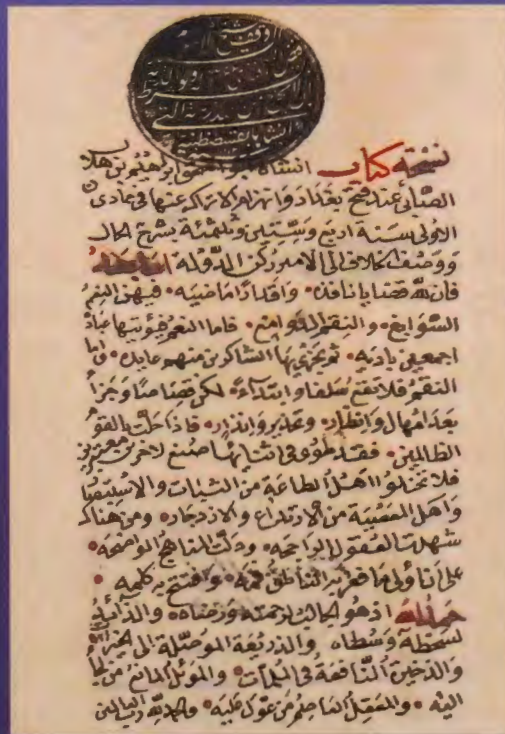 نسخة كتاب انشاه ابو اسحق ابرهيم بن هلال
الصابئ عند فتح بغداد وانهزام الاتراك عنها فى جمادى
الاولى سنة اربع وستين وثلثمئة بشرح الحال
ووصف الخلاف الى الامير ركن الدولة اما بعد
فان لله قضايا نافذه واقدارا ماضيه فيهن النعم
السوابغ والنقم الدوامغ فاما النعم فيؤتيها عباده
اجمعين باديه ثم يجزى بها الشاكرين منهم عايده فاما
النقم فلا تقع سلفا وابتداء لكن قصاصا وجزاء
بعد امهال وانظار وتحذير وانذار فاذا حلت بالقوم
الظالمين فقد طوى فى اثنائها صنع لاخرين معتبرين
فلا تخلوا اهل الطاعة من الثبات والاستبصار
واهل المعصية من الارتداع والازدجار ومن هناك
شهدت العقول الراجحه ودلت المناهج الواضحه
على ان اولى ما فغر به الناطق فمه وافتتح به كلمه
حمد لله اذ هو الجالب لرحمته ورضاه والذائد
لسخطه وسطاه والذريعة الموصلة الى الخيرات
والذخيرة النافعة فى الملمات والموئل المانع من لجأ
اليه والمعقل العاصم من عول عليه والحمد لله رب العالمين